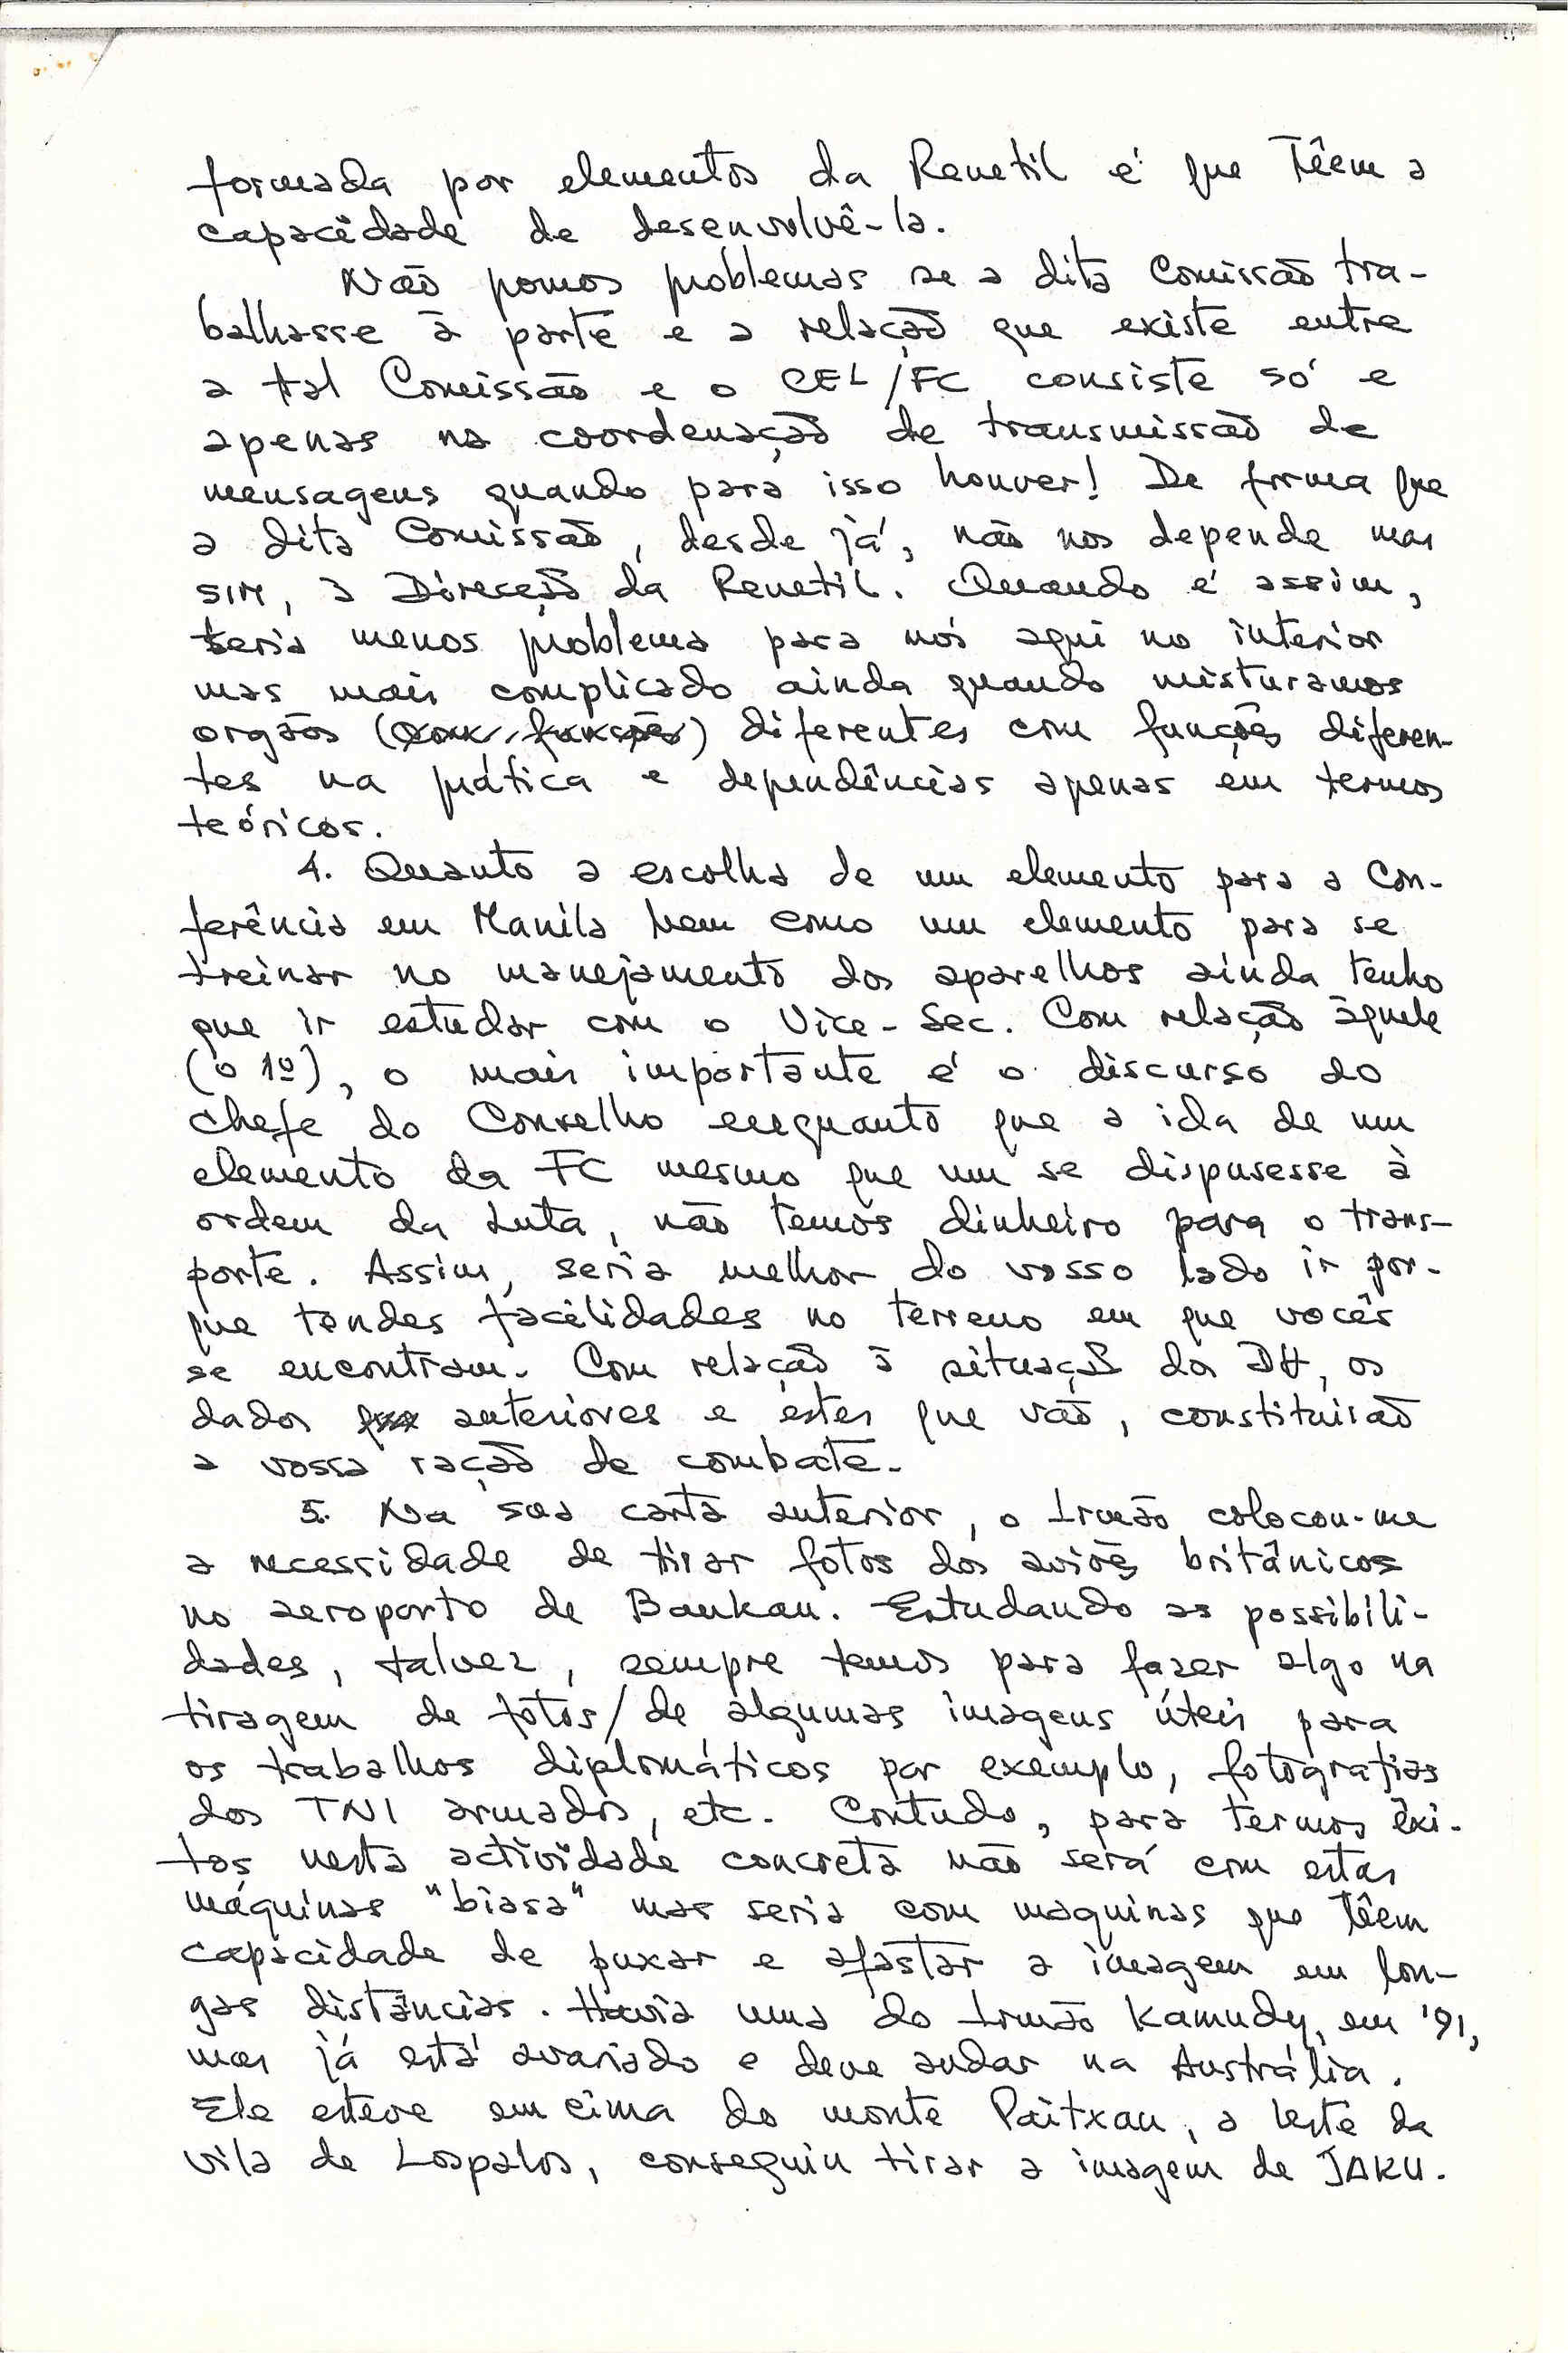 formada por elementos da Renetil é que Têem a
capacidade de desenvolvê-la.
Não pomos problemas se a dita Comissão tra-
balhasse à parte e a relação que existe entre
a tal Comissão e o CEL/FC consiste só e
apenas na coordenação de transmissão de
mensagens quando para isso houver! De forma que
a dita Comissão, desde já, não nos depende mas
SIM, à Direcção da Renetil. Quando é assim,
teria menos problema para nós aqui no interior
mas mais complicado ainda quando misturamos
orgãos (com funções) diferentes com funções diferen-
tes na prática e dependências apenas em termos
teóricos.
4. Quanto a escolha de um elemento para a Con-
ferência em Manila bem como um elemento para se
treinar no manejamento dos aparelhos ainda tenho
que ir estudar com o Vice-Sec. Com relação àquele
(o 1º), o mais importante é o discurso do
chefe do Conselho enquanto que a ida de um
elemento da FC mesmo que um se dispusesse à
ordem da Luta, não temos dinheiro para o trans-
porte. Assim, seria melhor do vosso lado ir por-
que tendes facilidades no terreno em que vocês
se encontram. Com relação à situação dos DH, os
dados anteriores e estes que vão, constituirão
a vossa ração de combate.
5. Na sua carta anterior, o Irmão colocou-me
a necessidade de tirar fotos dos aviões britânicos
no aeroporto de Baukau. Estudando as possibili-
dades, talvez, sempre temos para fazer algo na
tiragem de fotos/de algumas imagens úteis para
os trabalhos diplomáticos por exemplo, fotografias
dos TNI armados, etc. Contudo, para termos êxi-
tos nesta actividade concreta não será com estas
máquinas "biasa" mas seria com maquinas que Têem
capacidade de puxar e afastar a imagem em lon-
gas distâncias. Havia uma do Irmão Kamudy, em '91,
mas já está avariado e deve andar na Austrália.
Ele esteve em cima do monte Paitxau, a leste da
vila de Lospalos, conseguiu tirar a imagem de JAKU.